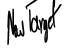 New Target